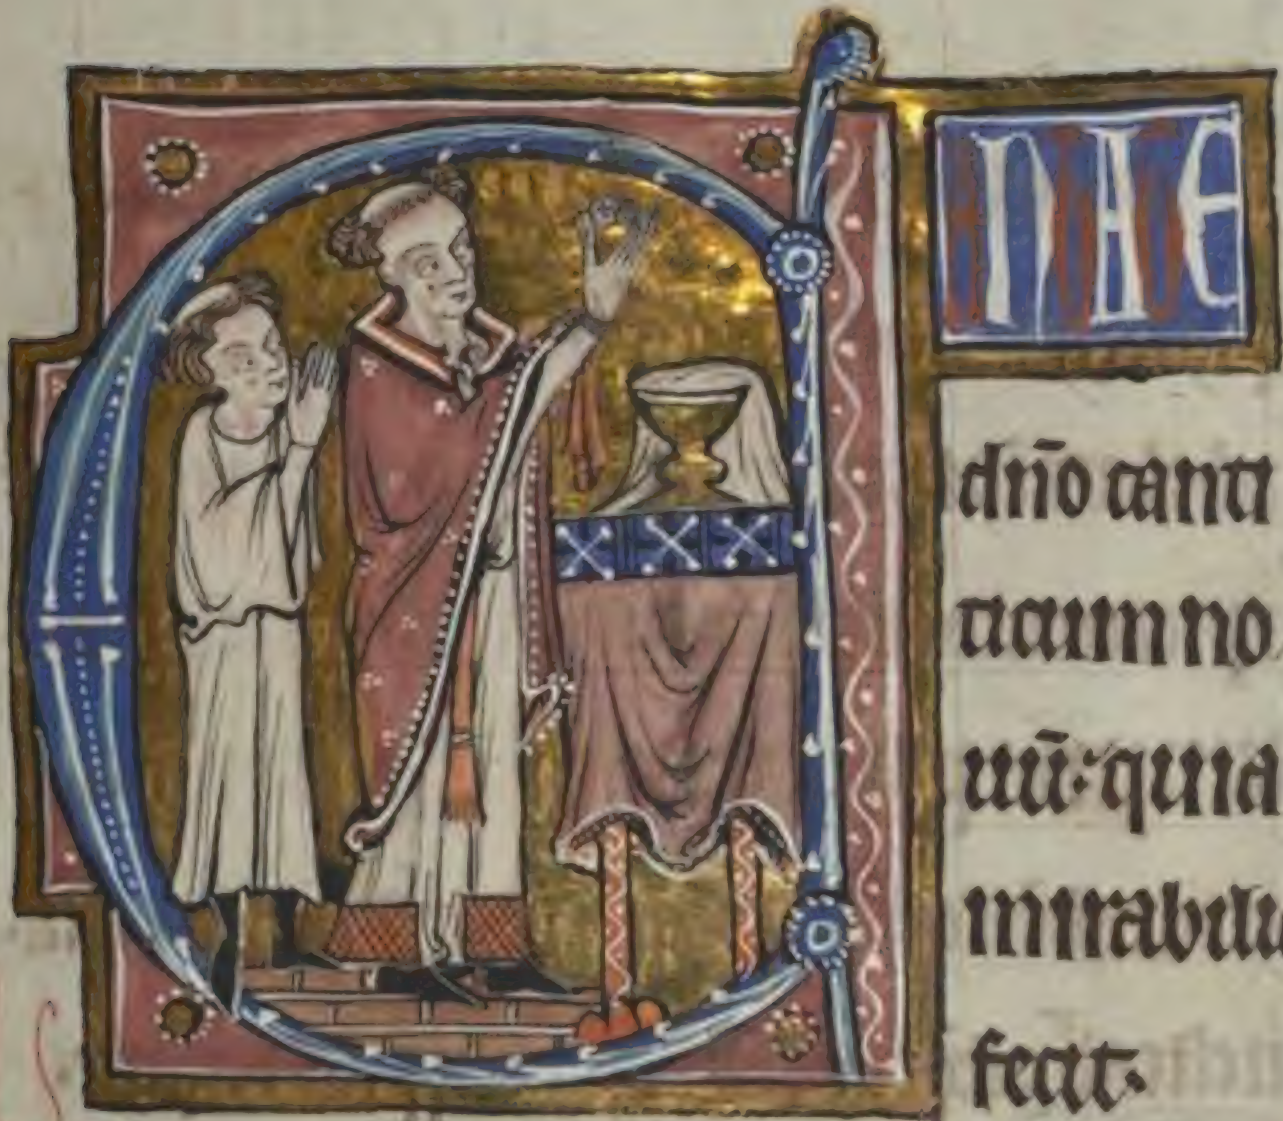 CANTATE
dn̄o canti
ticum no
uū·quia
mirabili
fecit.